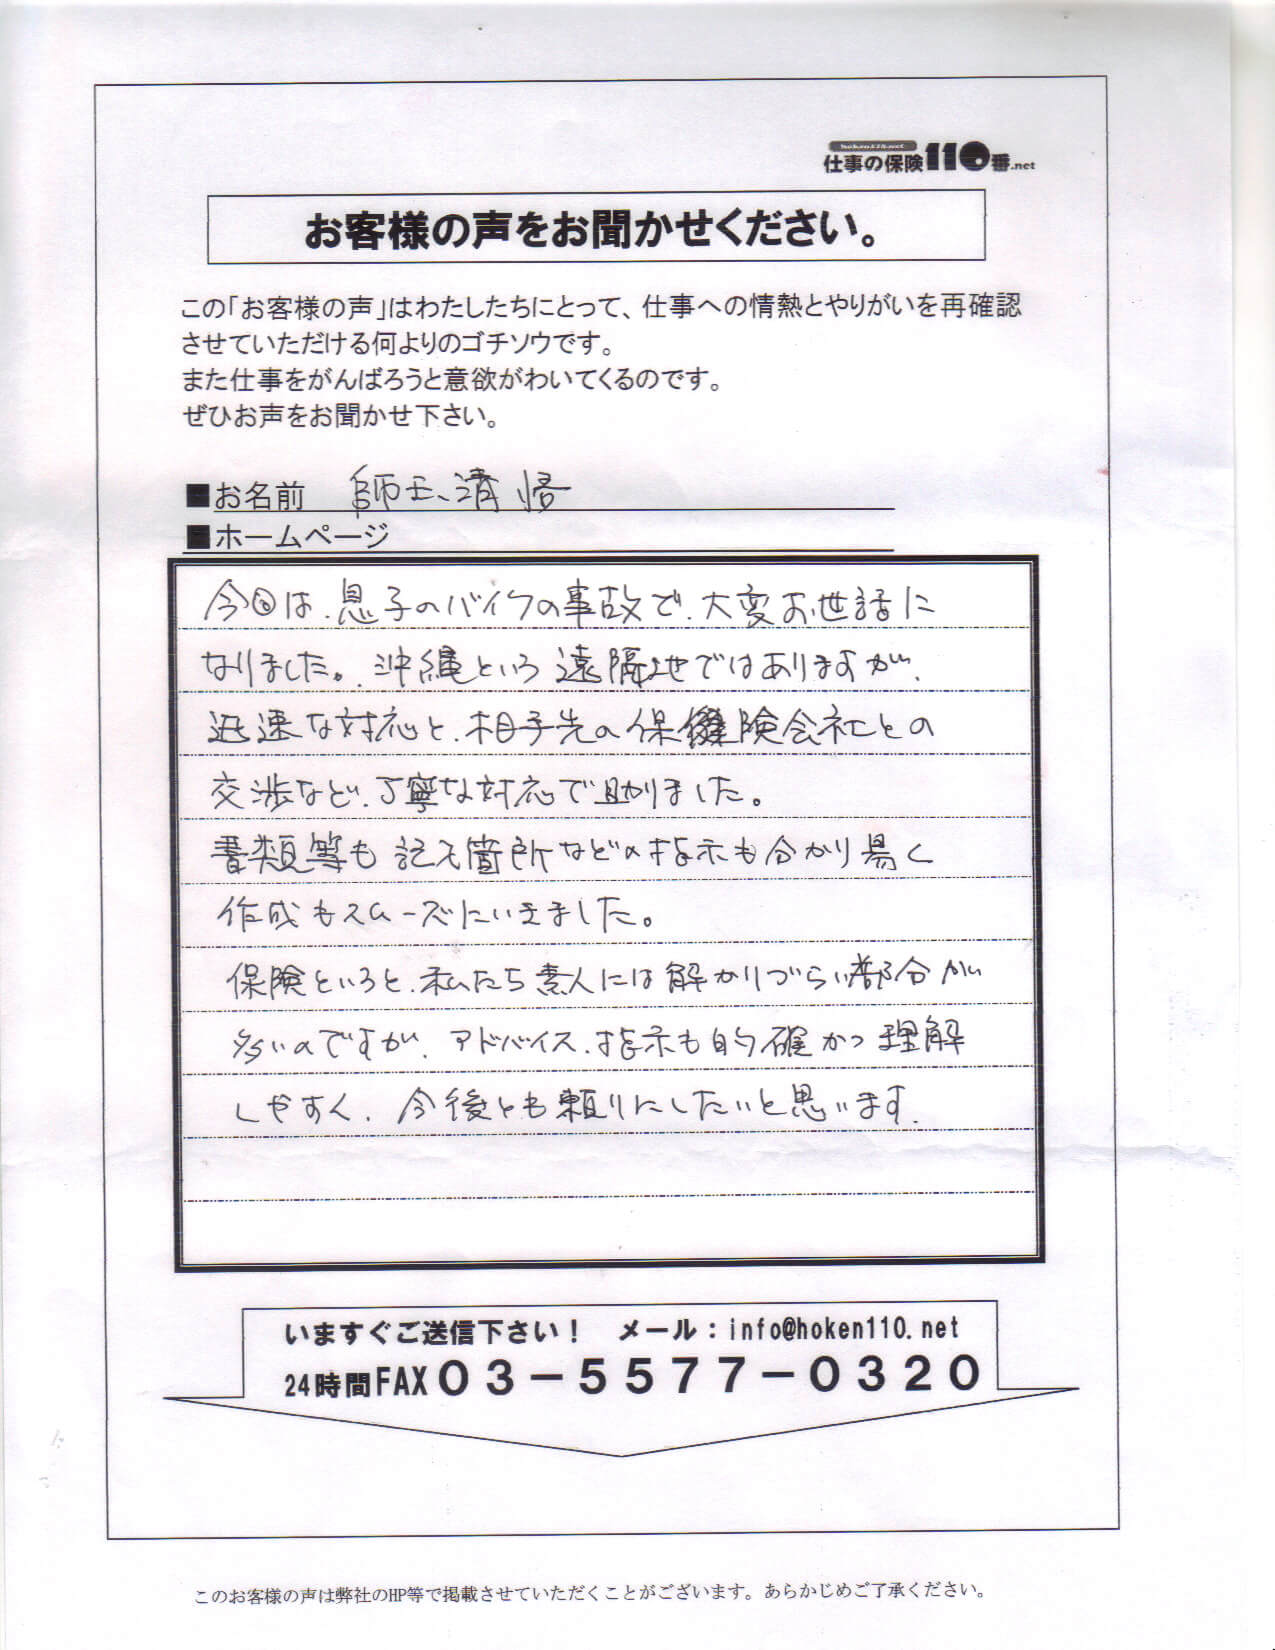 仕事の保険110番.net
お客様の声をお聞かせください。
この「お客様の声」はわたしたちにとって、仕事への情熱とやりがいを再確認
させていただける何よりのゴチソウです。
また仕事をがんばろうと意欲がわいてくるのです。
ぜひお声をお聞かせ下さい。
■お名前 師玉清悟
■ホームページ
今回は、息子のバイクの事故で、大変お世話に
なりました。沖縄という遠隔地ではありますが、
迅速な対応と、相手先の保険会社との
交渉など、丁寧な対応で助かりました。
書類等も記入箇所などの指示も分かり易く
作成もスムーズにいきました。
保険というと、私たち素人には解かりづらい部分が
多いのですが、アドバイス、指示も的確かつ理解
しやすく、今後とも頼りにしたいと思います。
いますぐご送信下さい! メール:info@hoken110.net
24時間FAX03-5577-0320
このお客様の声は弊社のHP等で掲載させていただくことがございます。あらかじめご了承ください。